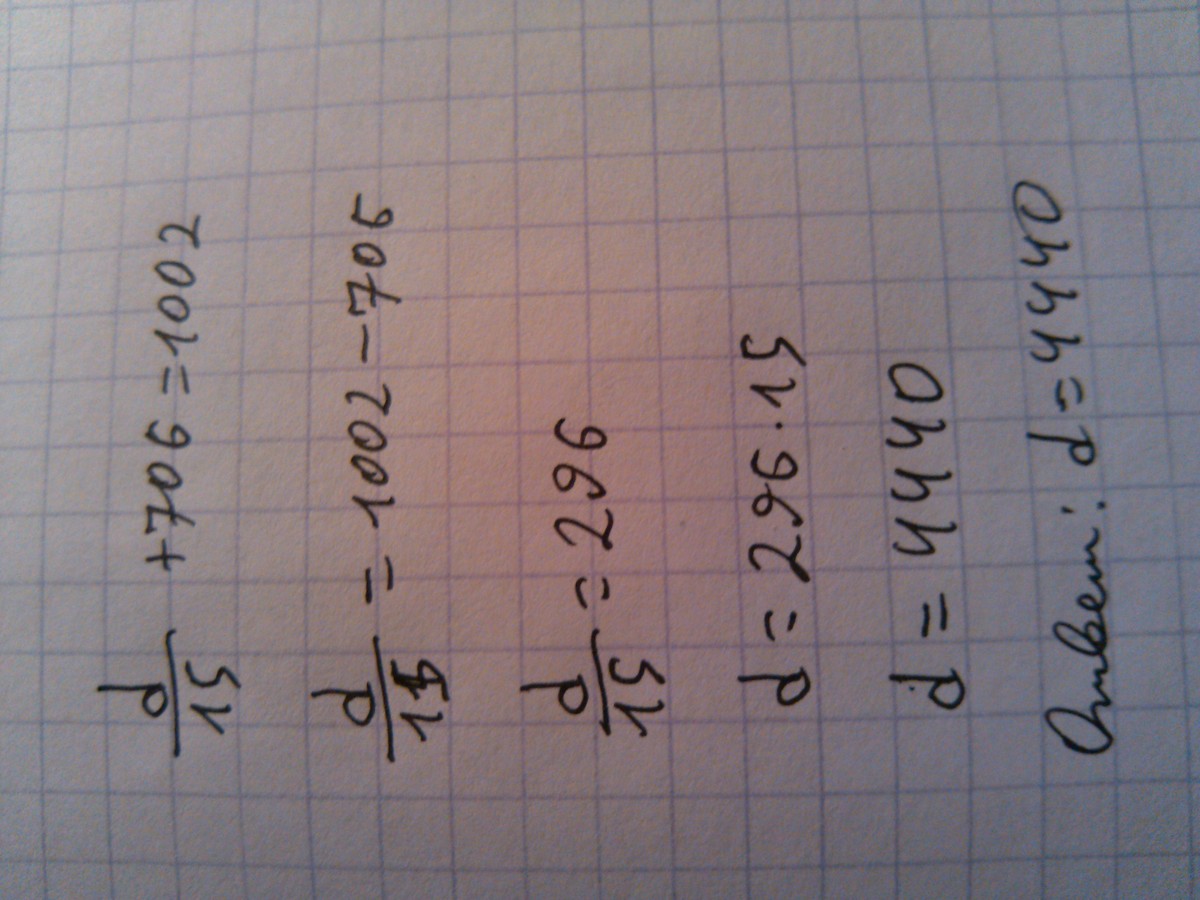 d/15 + 706 = 1002
d/15 = 1002 - 706
d/15 = 296
d = 296 · 15
d = 4440
Ответ: d = 4440